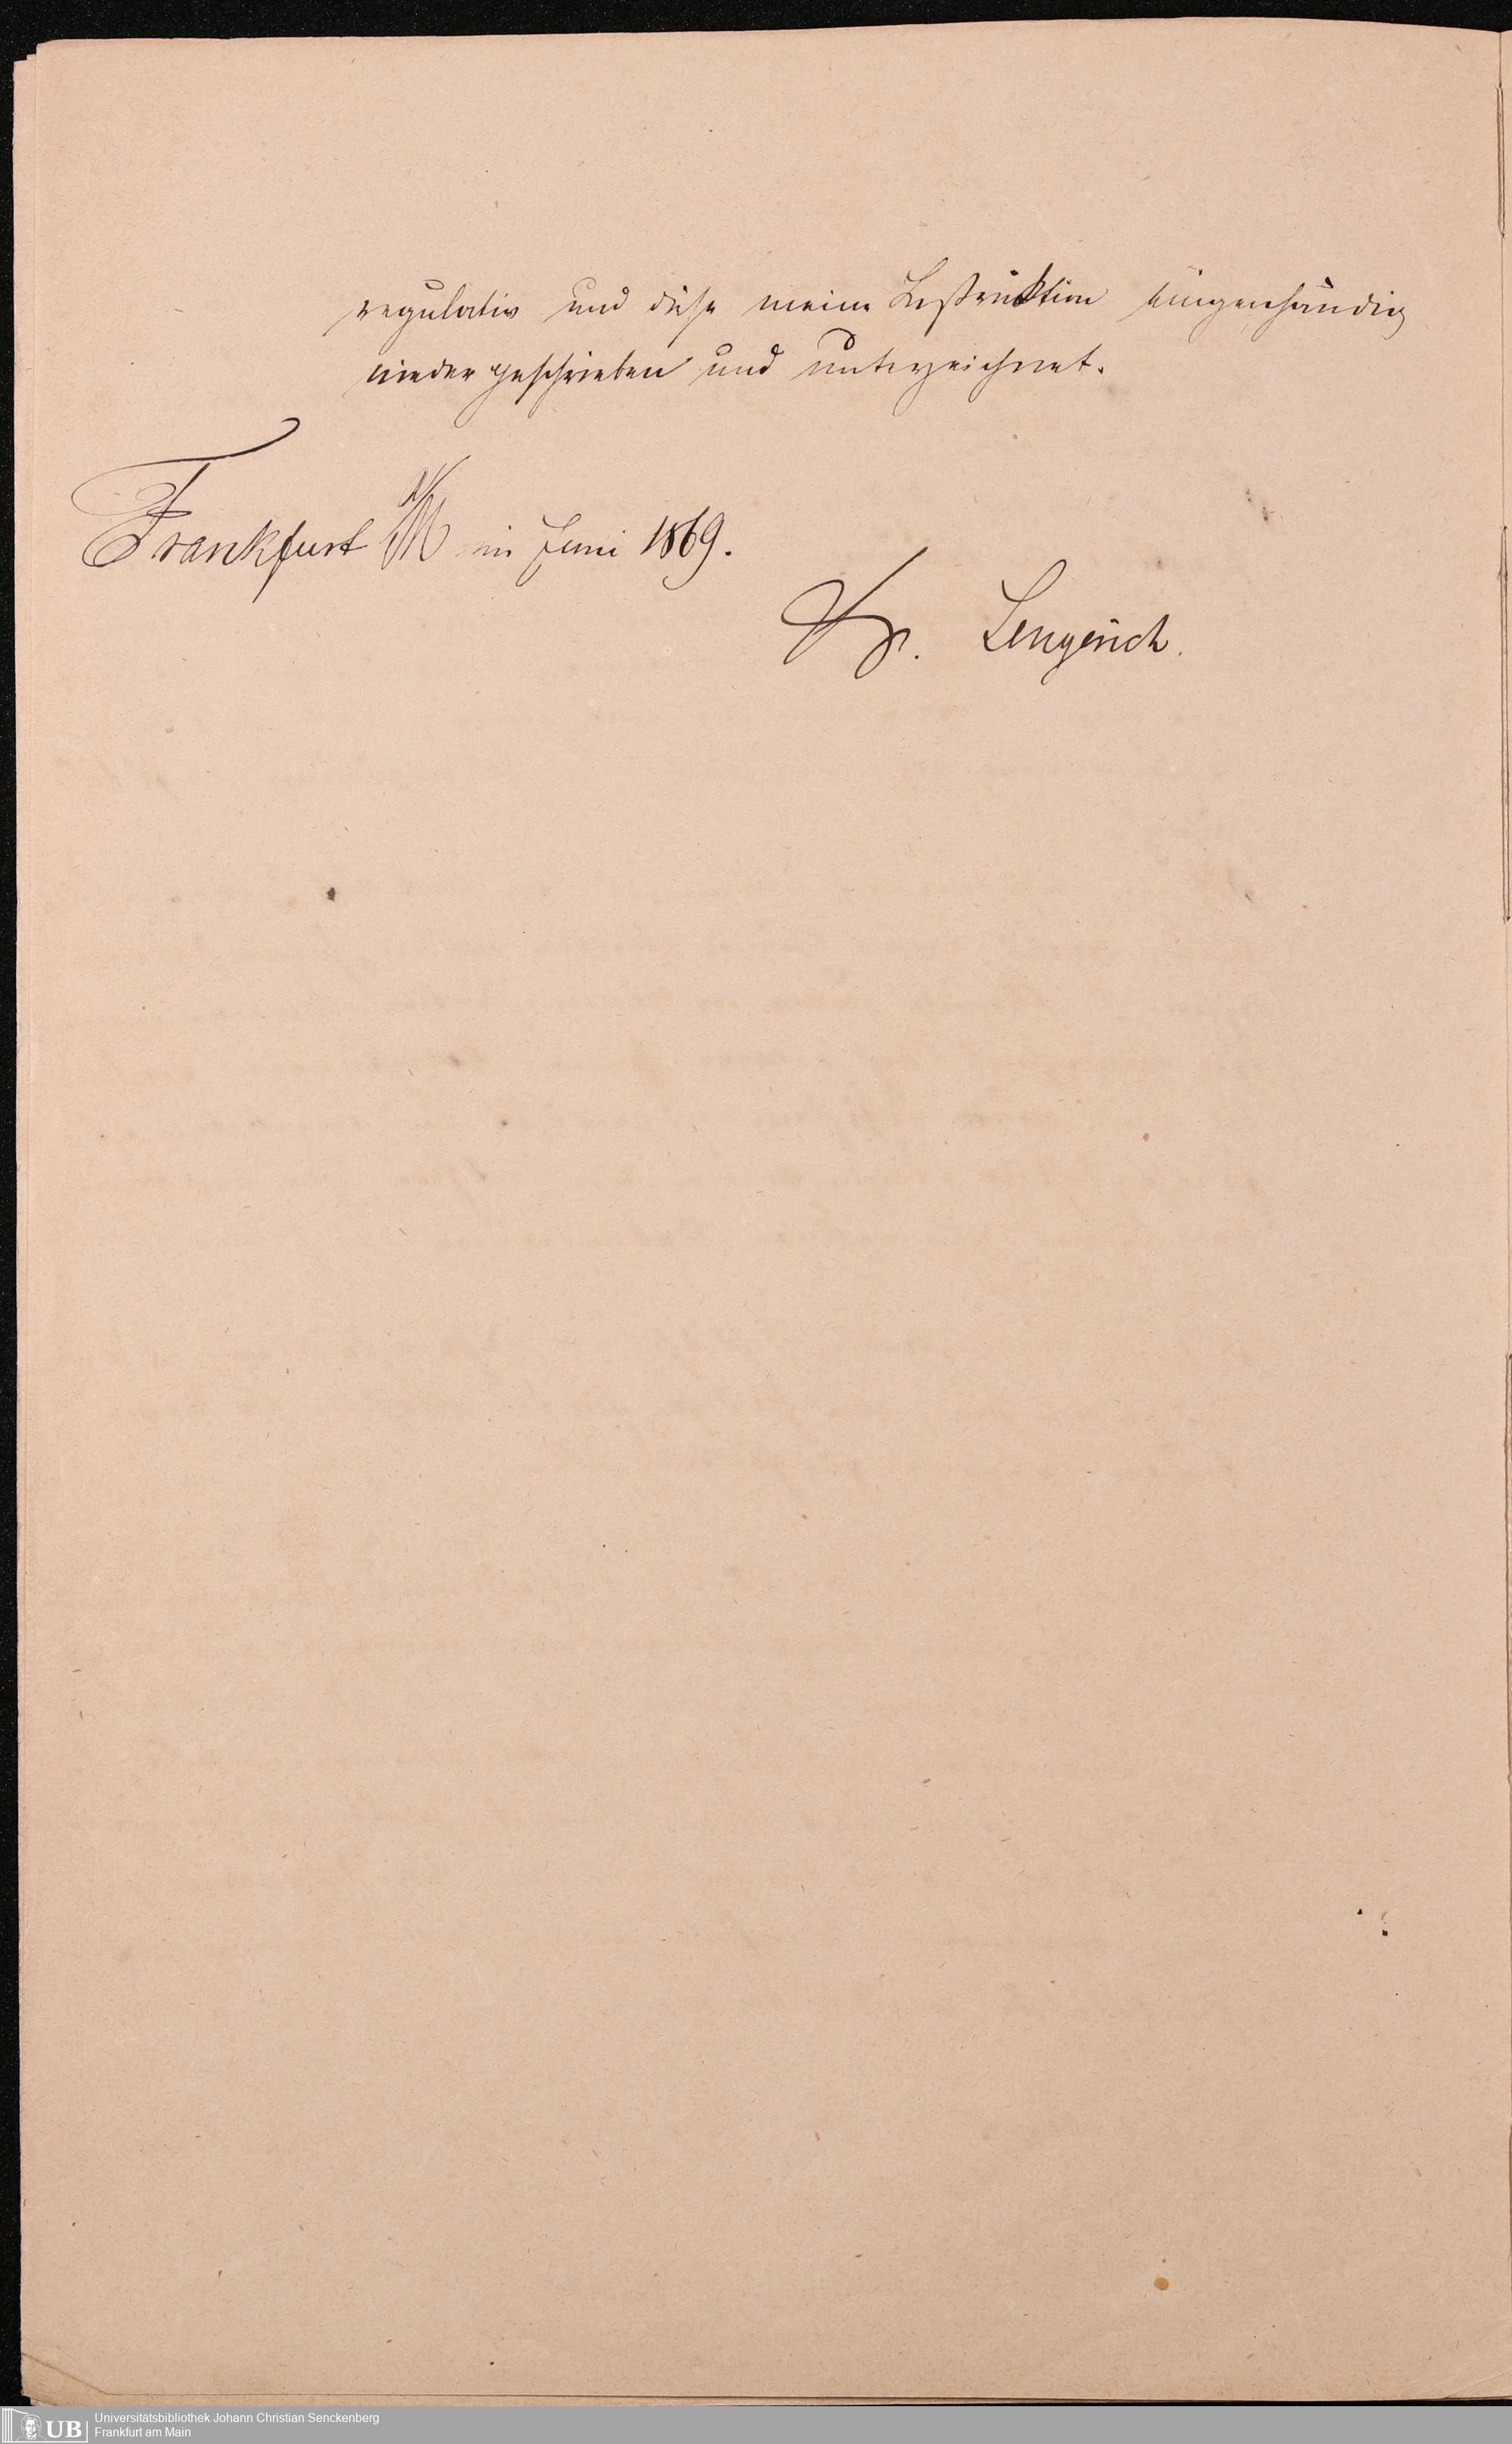 regulativ und diese meine Instruktion eingenhändig
nieder geschrieben und unterzeichnet.
Frankfurt a/M im Juni 1869.
Dr. Lengerich.
UB
Universitätsbibliothek Johann Christian Senckenberg
Frankfurt am Main